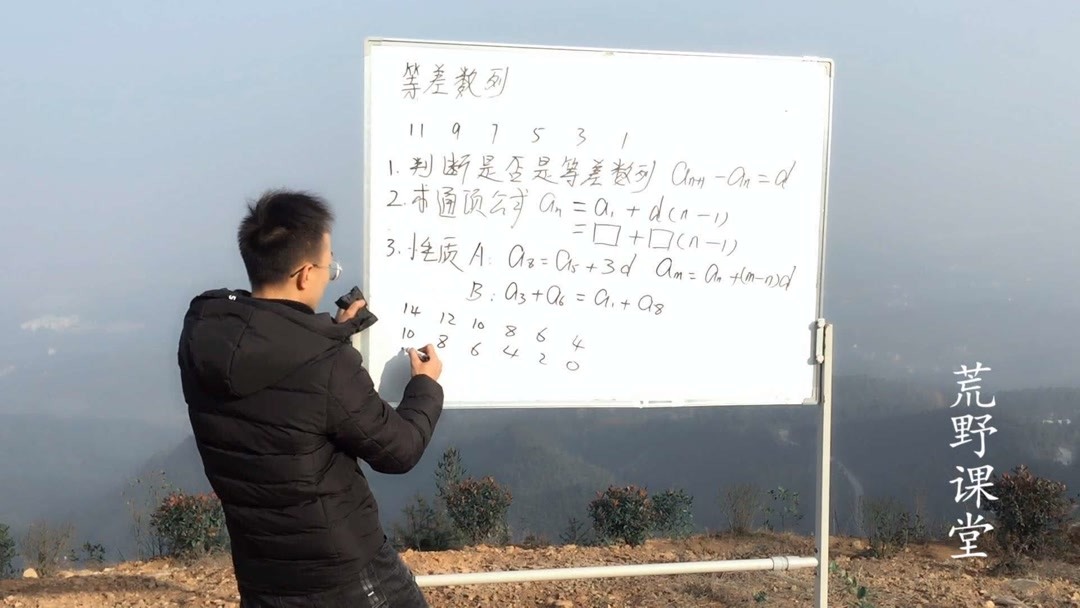 等差数列
11 9 7 5 3 1
1. 判断是否是等差数列 aₙ₊₁-aₙ=d
2. 求通项公式 aₙ=a₁+d(n-1)
=□+□(n-1)
3. 性质 A: a₈=a₅+3d aₘ=aₙ+(m-n)d
B: a₃+a₆=a₁+a₈
14 12 10 8 6 4
10 8 6 4 2 0
荒野课堂